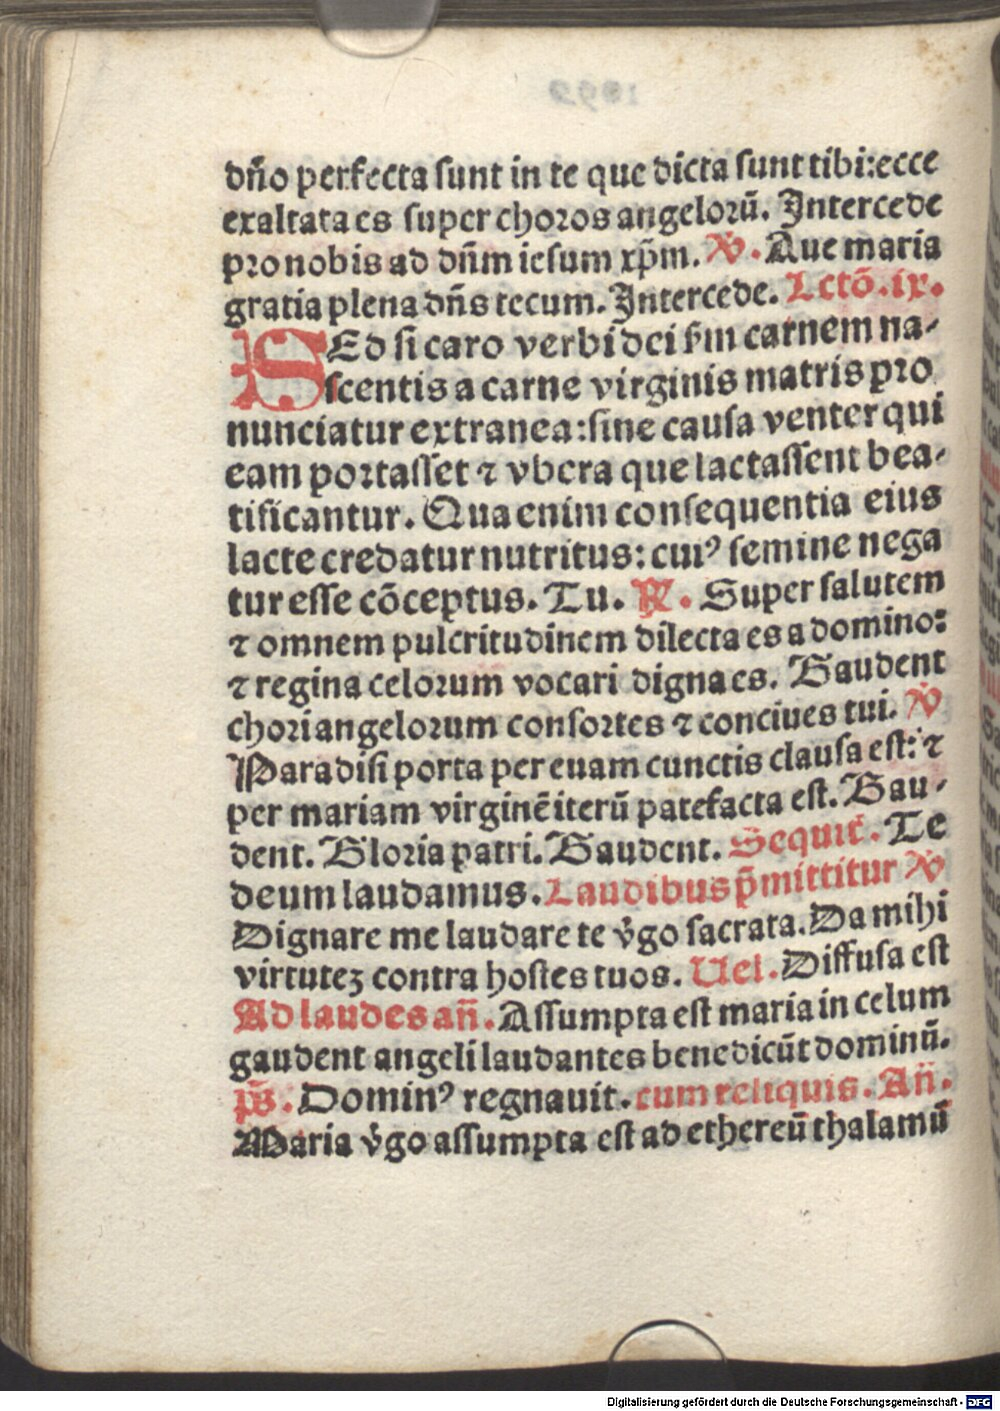 dño perfecta sunt in te que dicta sunt tibi:ecce
exaltata es super choros angelorū. Intercede
pro nobis ad dñm iesum xp̄m. ℣. Aue maria
gratia plena dñs tecum. Intercede. Lctō.ix.
SEd si caro verbi dei ẜm carnem na-
scentis a carne virginis matris pro
nunciatur extranea:sine causa venter qui
eam portasset ⁊ vbera que lactassent bea-
tificantur. Qua enim consequentia eius
lacte credatur nutritus: cuiꝰ semine nega
tur esse cōceptus. Tu. ℟. Super salutem
⁊ omnem pulcritudinem dilecta es a domino:
⁊ regina celorum vocari digna es. Gaudent
chori angelorum consortes ⁊ conciues tui. ℣
Paradisi porta per euam cunctis clausa est: ⁊
per mariam virginē iterū patefacta est. Gau-
dent. Gloria patri. Gaudent. Sequit̄. Te
deum laudamus. Laudibus p̄mittitur ℣
Dignare me laudare te v̓go sacrata. Da mihi
virtuteꝫ contra hostes tuos. Uel. Diffusa est
Ad laudes añ. Assumpta est maria in celum
gaudent angeli laudantes benedicūt dominū.
p̄s. Dominꝰ regnauit. cum reliquis. Añ.
Maria v̓go assumpta est ad ethereū thalamū
Digitalisierung gefördert durch die Deutsche Forschungsgemeinschaft - DFG